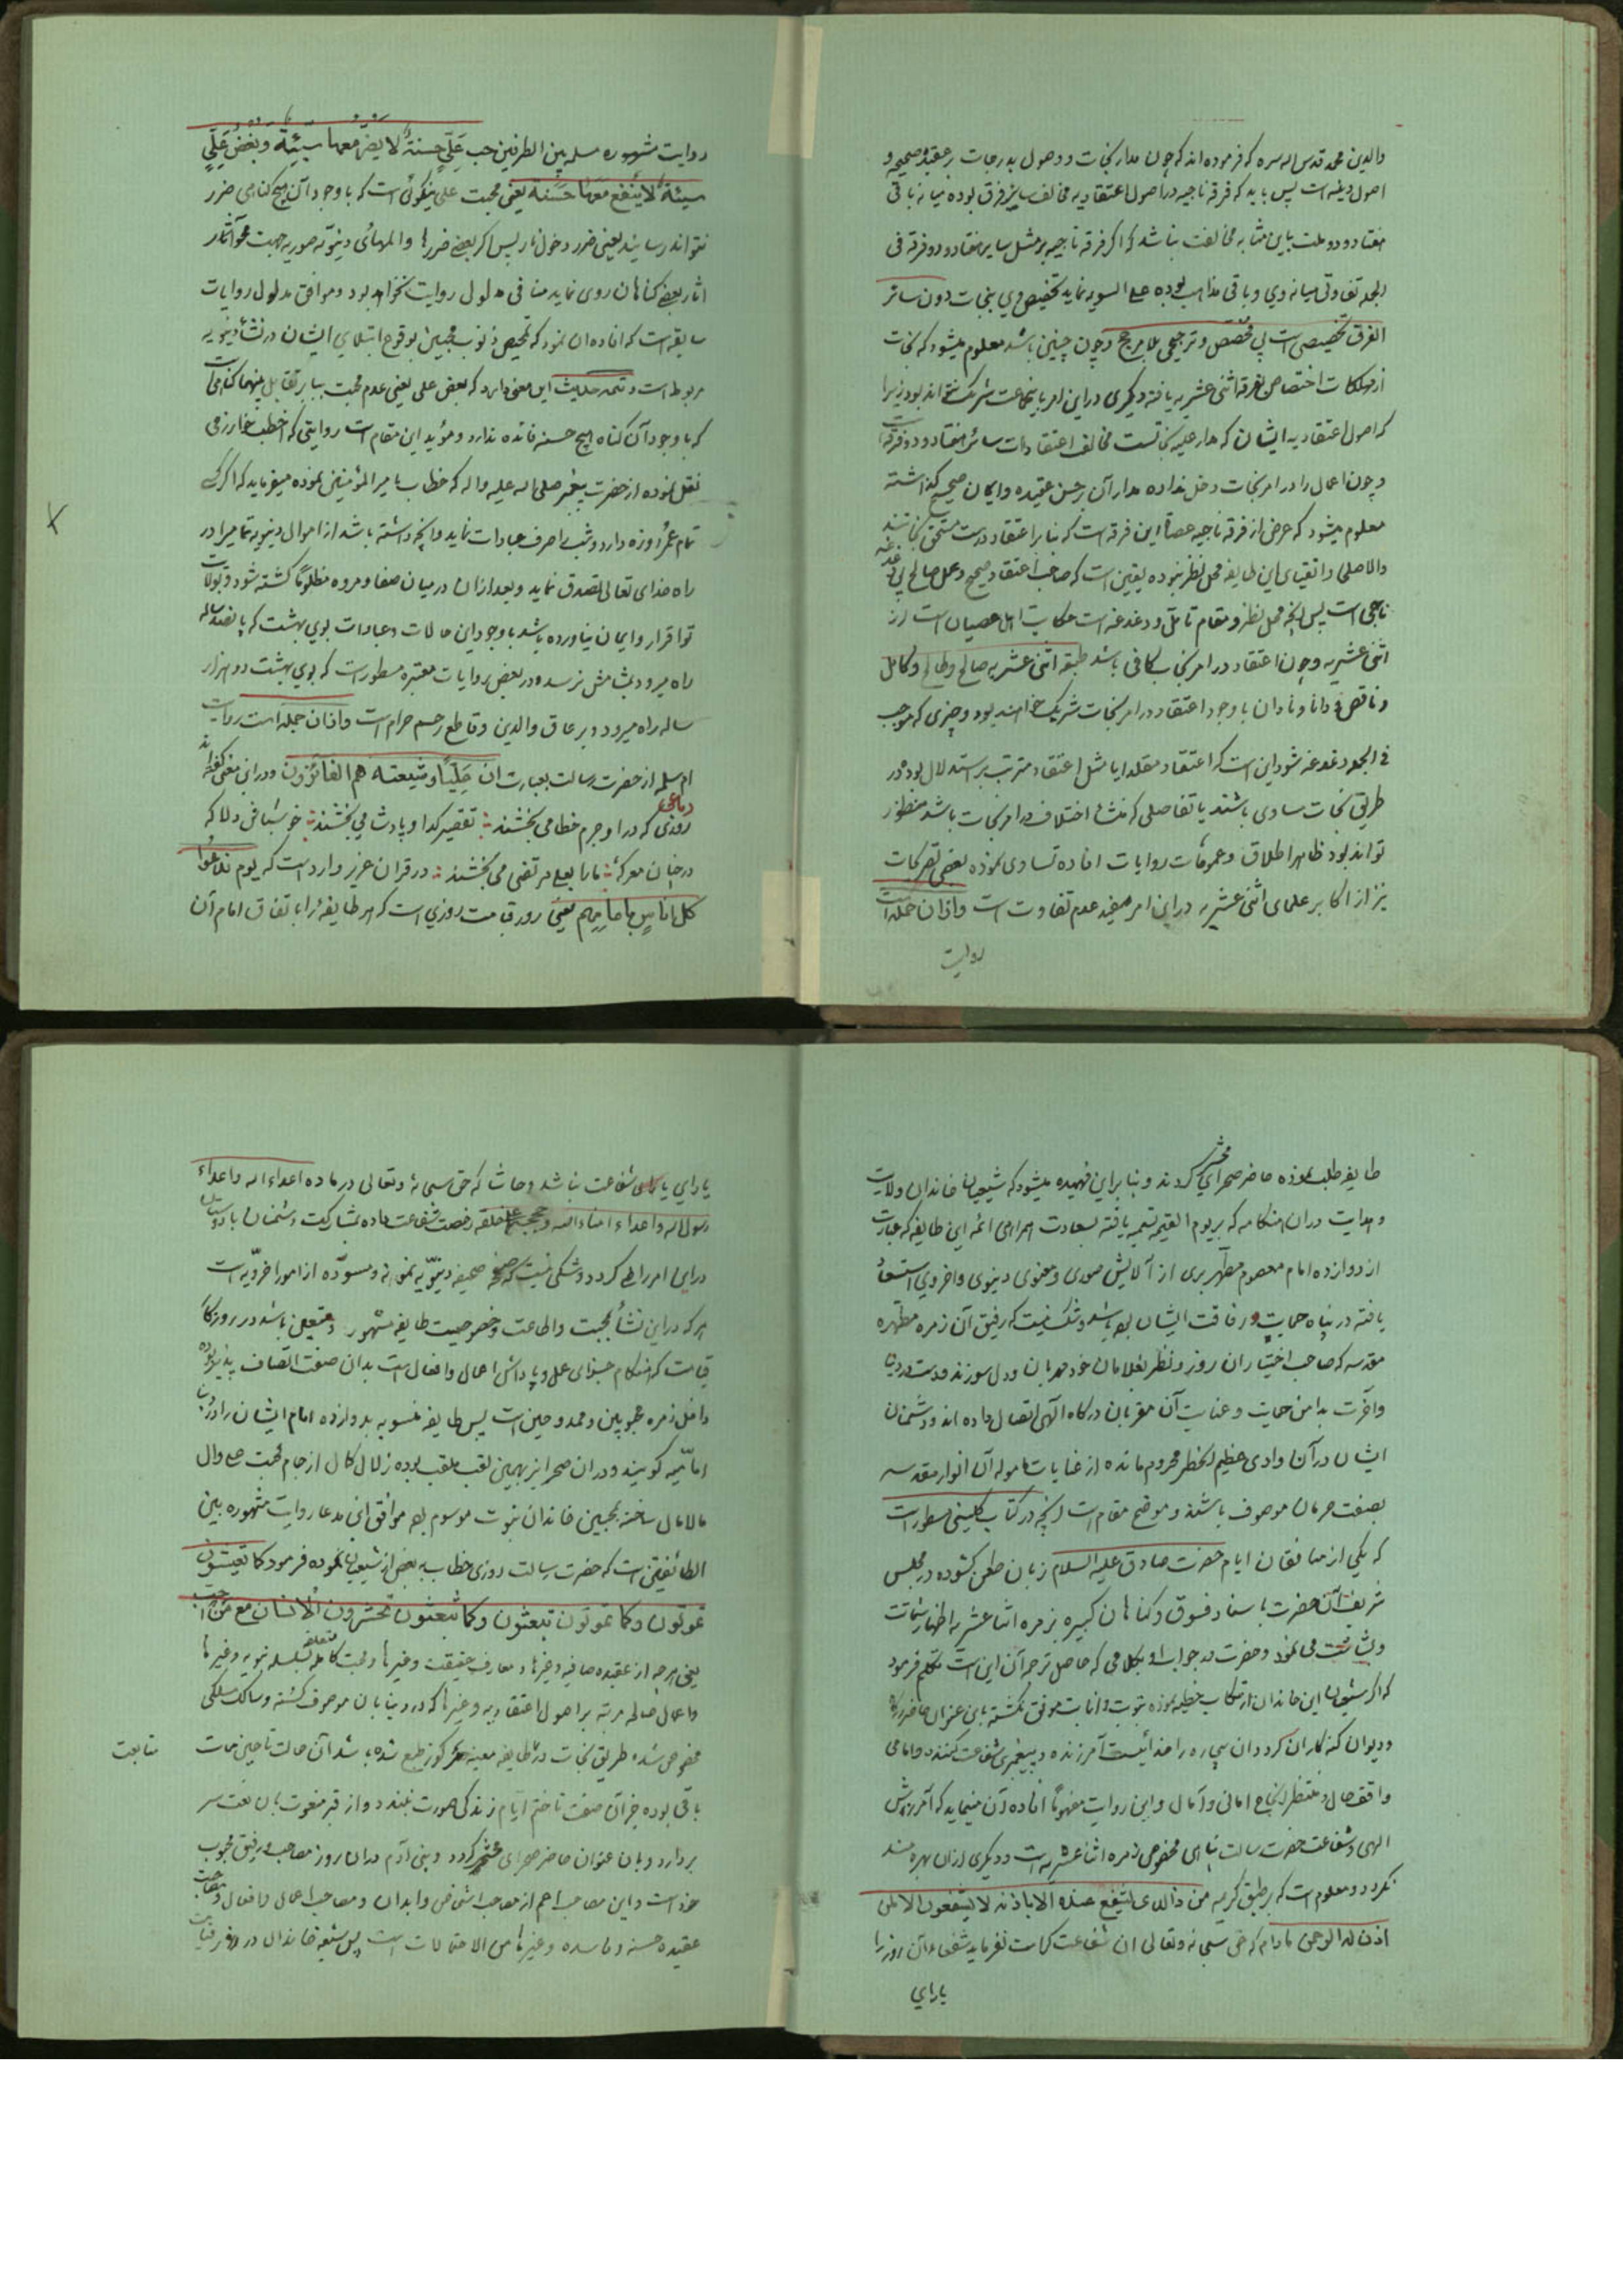 والدین محمد قدس الله سره که فرموده اند که چون مدار نجات و وصول بدرجات بر عقیده صحیحه و
اصول دینیه است پس باید که فرقه ناجیه در اصول اعتقادیه مخالف سایر فرق بوده میانه باقی
هفتاد و دو ملت باین مثابه مخالفت نباشد که اگر فرقه ناجیه بر مثل سایر هفتاد و دو فرقه فی
الجمله تفاوتی میانه وی و باقی مذاهب بوده علی السویه نماید تخصیص وی بنجات دون سائر
الفرق تخصیصی است بی مخصص و ترجیحی بلا مرجح و چون چنین باشد معلوم میشود که نجات
از مهلکات اختصاص بفرقه اثنی عشریه یافته دیگری در این امر باینجماعت شریک نتواند بود زیرا
که اصول اعتقادیه ایشان که مدار علیه نجاتست مخالف اعتقادات سائر هفتاد و دو فرقه است
و چون اعمال را در امر نجات دخل نداده مدار آن بر حسن عقیده و ایمان صحیح گذاشته
معلوم میشود که غرض از فرقه ناجیه عصاة این فرقه است که بنا بر اعتقاد درست مستحق نجاتند
والا صلحا و اتقیای این طایفه محل نظر نبوده یقین است که صاحب اعتقاد صحیح و عمل صالح بی دغدغه
ناجی است پس آنچه محل نظر و مقام تامل و دغدغه است حکایت اهل عصیان است از
اثنی عشریه و چون اعتقاد در امر نجات کافی باشد طبقه اثنی عشریه صالح و طالح و کامل
و ناقص و دانا و نادان با وجود اعتقاد در امر نجات شریک خواهند بود و چیزی که موجب
فی الجمله دغدغه شود این است که اعتقاد مقلد ایا مثل اعتقاد مترتب بر استدلال بوده در
طریق نجات مساوی باشند یا تفاصلی که منشأ اختلاف در امر نجات باشد منظور
تواند بود ظاهر اطلاق و عمومات روایات افاده تساوی نموده بعضی تصریحات
نیز از اکابر علمای اثنی عشریه در این امر مفید عدم تفاوت است و از ان جمله است
روایت
روایت مشهوره مسلمه بین الطرفین حب عَلِیٍّ حسنةٌ لا یضر معها سیّئةٌ و بُغضُ عَلِیٍّ
سیئةٌ لا ینفع معها حَسَنة یعنی محبت علی نیکوئی است که با وجود آن هیچ گناهی ضرر
نتواند رسانید یعنی ضرر دخول نار پس اگر بعضی ضررها و المهائی دنیویه صوریه جهت محو آثار
اثار بعضی گناهان روی نماید منافی مدلول روایت نخواهد بود و موافق مدلول روایات
سابقه است که افاده ان نمود که تمحیص ذنوب محبین بوقوع ابتلای ایشان در نشأ دنیویه
مربوط است و تتمه حدیث این معنی دارد که بغض علی یعنی عدم محبت بنا بر تقابل بینهما گناهی است
که با وجود آن گناه هیچ حسنه فائده ندارد و مؤید این مقام است روایتی که اخطب خوارزمی
نقل نموده از حضرت پیغمبر صلی الله علیه واله که خطاب بامیر المؤمنین نموده میفرماید که اگر کسی
تمام عمر روزه دارد و شب را صرف عبادات نماید و آنچه داشته باشد از اموال دنیویه تمامی را در
راه خدای تعالی تصدق نماید و بعد از ان در میان صفا و مروه مظلوما کشته شود و بولایت
تو اقرار و ایمان نیاورده باشد با وجود این حالات و عبادات بوی بهشت که پانصد ساله
راه میرود بمشامش نرسد و در بعض روایات معتبره مسطور است که بوی بهشت دو هزار
ساله راه میرود و بر عاق والدین و قاطع رحم حرام است و از ان جمله است روایت
ام سلمه از حضرت رسالت بعبارت ان عَلِیّاً و شیعته هم الفائزون و در این معنی گفته اند
رباعی
روزی که در او جرم خطا می بخشند تقصیر گدا و پادشا می بخشند خوش باش دلا که
در چنان معرکه ما را بعلی مرتضی می بخشند در قران عزیز وارد است که یوم ندعوا
کل اناسٍ بامامهم یعنی روز قیامت روزی است که هر طایفه را باتفاق امام آن
طایفه طلب نموده حاضر صحرای محشر گردند و بنابراین فهمیده میشود که شیعیان خاندان ولایت
و هدایت در ان هنگامه که بر یوم القیمه تسمیه یافته بسعادت همراهی ائمه این طایفه که عبارت
از دوازده امام معصوم مطهر بری از آلایش صوری و معنوی دنیوی و اخروی است
یافته در پناه حمایت و رفاقت ایشان بوده باشد و شک نیست که رفیق آن زمره مطهره
مقدسه که صاحب اختیاران روزند و نظر بغلامان خود مهربان و دلسوزند و دست در دنیا
و آخرت بدامن حمایت و عنایت آن مقربان درگاه الهی اتصال داده اند و دشمنان
ایشان در آن وادی عظیم الخطر محروم مانده از عنایات مأموله آن انوار مقدسه
بصفت حرمان موصوف باشند و موضح مقام است آنچه در کتاب کلینی مسطور است
که یکی از منافقان ایام حضرت صادق علیه السلام زبان طعن گشوده در مجلس
شریف آن حضرت باسناد فسوق و گناهان کبیره بزمره اثنا عشریه اظهار شماتت
و بشاشت می نمود و حضرت در جواب او بکلامی که حاصل ترجمه آن این است تکلم فرمود
که اگر شیعیان این خاندان ارتکاب خطیئه نموده بتوبت و انابت موفق نگشته باین عنوان حاضر درگاه
و دیوان گنه کاران گردد ان بیچاره را خدائیست آمرزنده و پیغمبری شفاعت کننده و امامی
واقف حال و منتظر انجاح امانی و آمال و این روایت مفهوما افاده آن مینماید که آمرزش
الهی و شفاعت حضرت رسالت پناهی مخصوص زمره اثنا عشریه است و دیگری از ان بهره مند
نگردد و معلوم است که بر طبق کریمه من ذالذی یشفع عنده الا باذنه لا یشفعون الا لمن
اذن له الرحمن مادام که حق سبحانه و تعالی ان شفاعت کرامت نفرماید شفعاء آن روز را
یارای
یارای یاد شفاعت نباشد و حاشا که حق سبحانه و تعالی در ماده اعداء الله و اعداء
رسول الله و اعداء امناء الله و حججه علی خلقه رخصت شفاعت داده بمشارکت دشمنان با دوستان
در این امر راضی گردد و شکی نیست که صحیفه دنیویه نمونه و مسوّده از امور اخرویه است
هر که در این نشأ بمحبت و اطاعت و خصوصیت طایفه مشهور و متعین باشد در روزگار
قیامت که هنگام جزای عمل و پاداش اعمال و افعال است بدان صفت اتصاف پذیر بوده
داخل زمره محبوبین و ممدوحین است پس طایفه منسوبه بدوازده امام ایشان را در دنیا
امامیه گویند و در ان صحرا نیز بهمین لقب ملقب بوده زلال کمال از جام محبت علی و ال
مالامال ساخته بمحبین خاندان نبوت موسوم بوده موافق این مدعا روایت مشهوره بین
الطائفتین است که حضرت رسالت روزی خطاب به بعض از شیعیان نموده فرمود کما تعیشون
تموتون و کما تموتون تبعثون و کما تبعثون تحشرون الانسان مع من احب
یعنی هر چه از عقیده صافیه و غیرها و معارف حقیقت و غیرها و محبت کامله متعلقه بسلسله نبویه و غیرها
و اعمال صالحه مرتبه بر اصول اعتقادیه و غیرها که در دنیا بان موصوف گشته و سالک مسلکی
مخصوص شده طریق نجات در طایفه معینه مرکوز طبع شده باشد آن حالت تا حین ممات
متابعت
باقی بوده جز آن صفت تا ختم ایام زندگی صورت نبندد و از قبر منعوت بان نعت سر
بردارد و بان عنوان حاضر صحرای محشر گردد و بنی آدم در ان روز مصاحب و رفیق محبوب
خود است و این مصاحب اعم از مصاحب اشخاص و ابدان و مصاحب اعمال و افعال و مصاحبت
عقیده حسنه و فاسده و غیرها من الاحتمالات است پس شیعه خاندان در روز قیامت